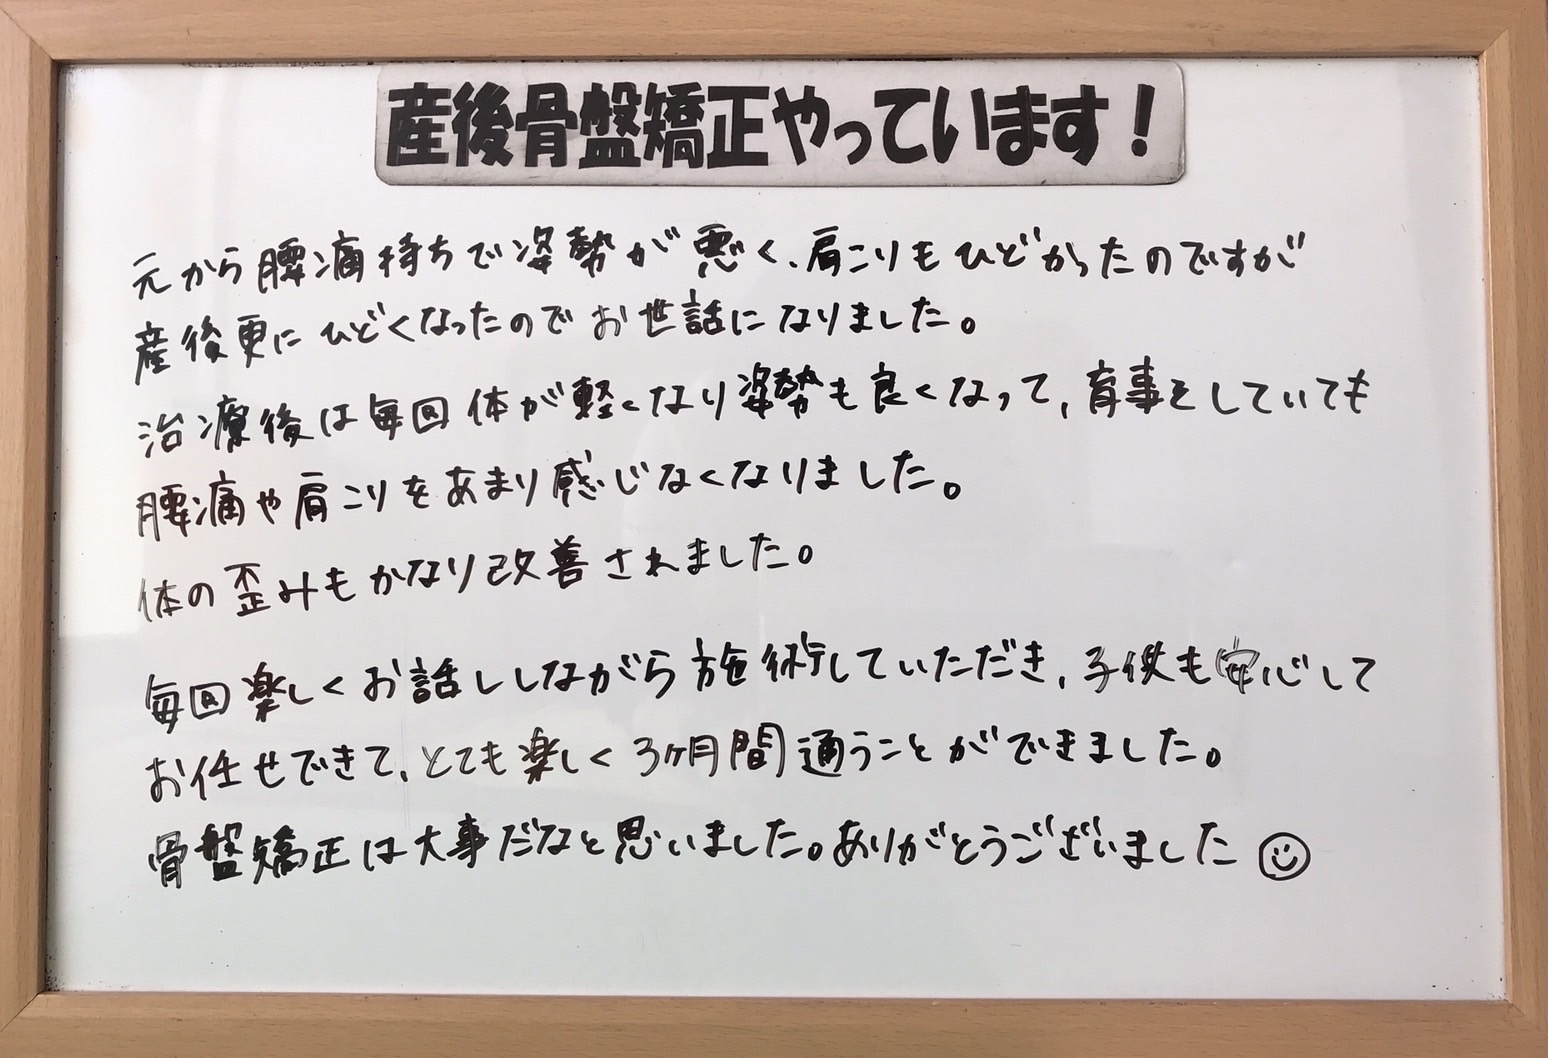 産後骨盤矯正やっています!
元から腰痛持ちで姿勢が悪く、肩こりもひどかったのですが
産後更にひどくなったのでお世話になりました。
治療後は毎回体が軽くなり姿勢も良くなって、育事をしていても
腰痛や肩こりをあまり感じなくなりました。
体の歪みもかなり改善されました。
毎回楽しくお話ししながら施術していただき、子供も安心して
お任せできて、とても楽しく3ヶ月間通うことができました。
骨盤矯正は大事だなと思いました。ありがとうございました